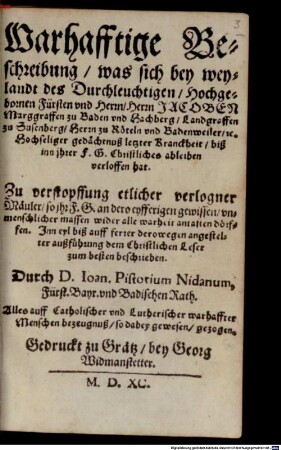 3
Warhafftige Be-
schreibung / was sich bey wey-
landt des Durchleuchtigen / Hochge-
bornen Fürsten vnd Herrn / Herrn JACOBEN
Marggraffen zu Baden vnd Hachberg / Landgraffen
zu Susenberg / Herrn zu Röteln vnd Badenweiler / ꝛc.
Hochseliger gedächtnuß letzter Kranckheit / biß
inn jhrer F. G. Christliches ableiben
verloffen hat.
Zu verstopffung etlicher verlogner
Mäuler / so jhr F. G. an dero eyfferigen gewissen / vn-
menschlicher massen wider alle warheit antasten dörf-
fen. Inn eyl biß auff ferrer derowegen angestel-
ter außführung dem Christlichen Leser
zum besten beschrieben.
Durch D. Ioan. Pistorium Nidanum,
Fürst. Bayr. vnd Badischen Rath.
Alles auff Catholischer vnd Lutherischer warhaffter
Menschen bezeugnuß / so dabey gewesen / gezogen.
Gedruckt zu Grätz / bey Georg
Widmanstetter.
M. D. XC.